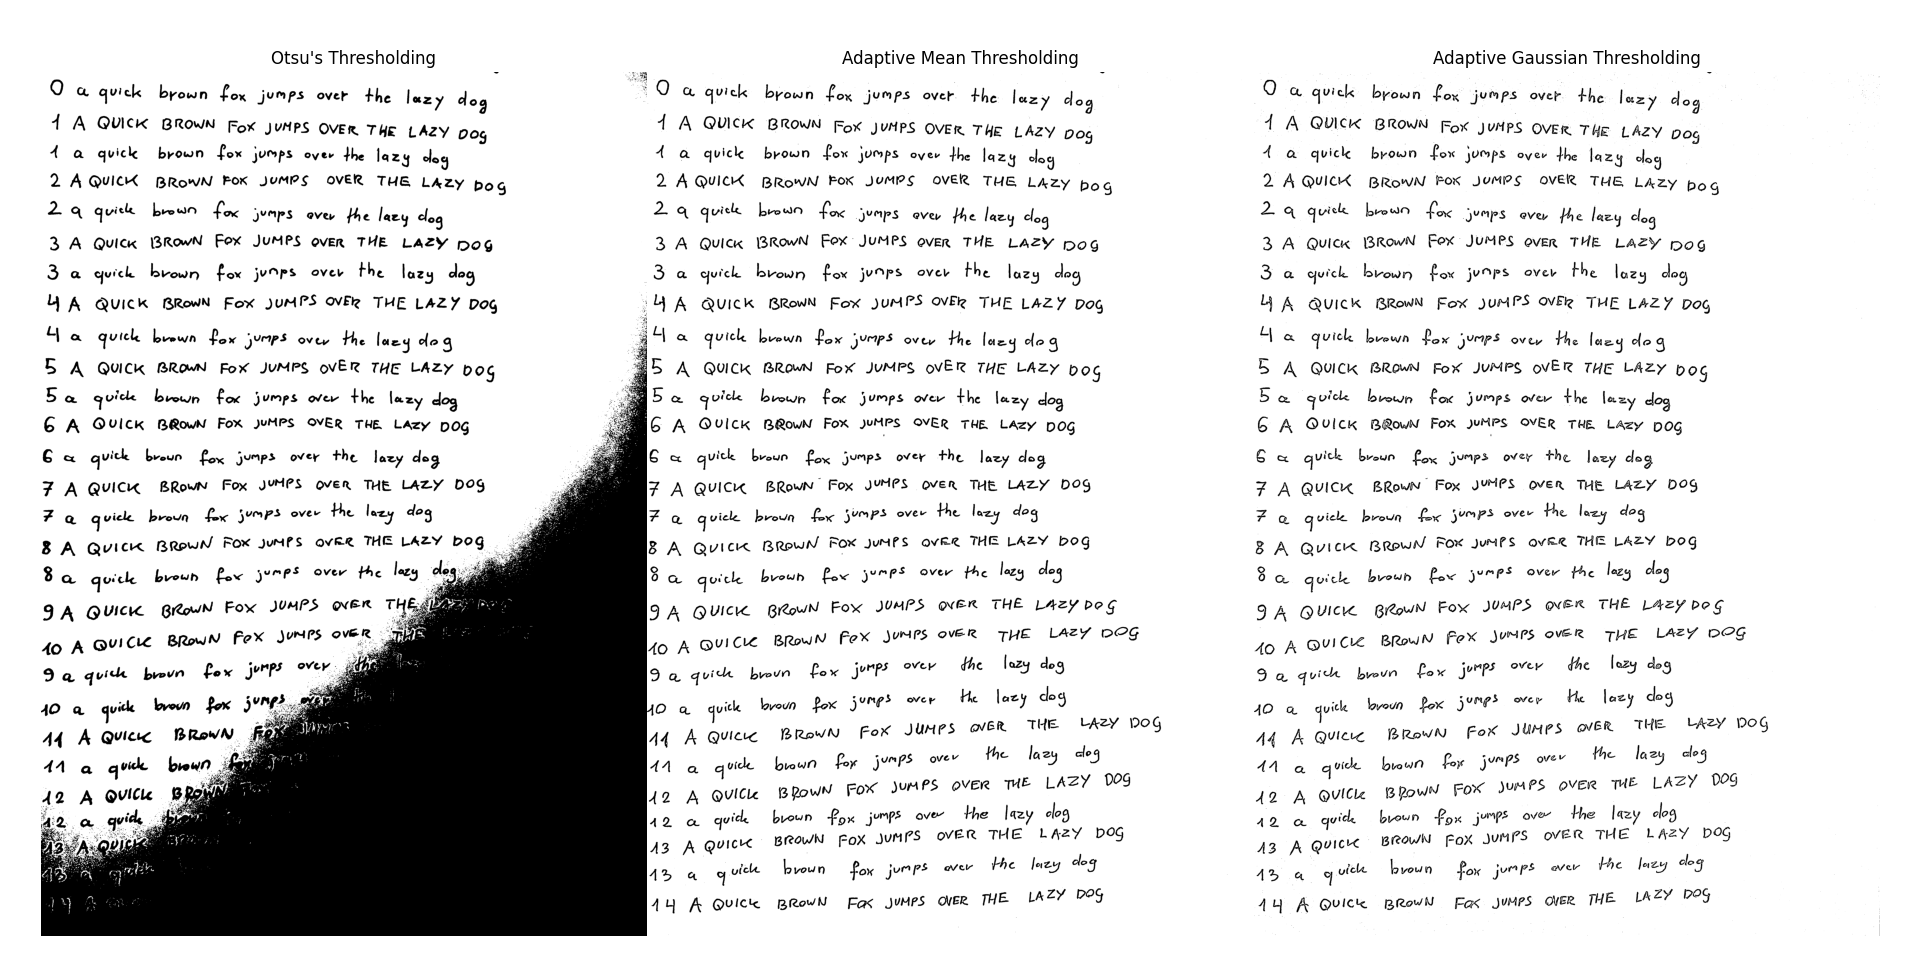 Otsu's Thresholding
0 a quick brown fox jumps over the lazy dog
1 A QUICK BROWN FOX JUMPS OVER THE LAZY DOG
1 a quick brown fox jumps over the lazy dog
2 A QUICK BROWN FOX JUMPS OVER THE LAZY DOG
2 a quick brown fox jumps over the lazy dog
3 A QUICK BROWN FOX JUMPS OVER THE LAZY DOG
3 a quick brown fox jumps over the lazy dog
4 A QUICK BROWN FOX JUMPS OVER THE LAZY DOG
4 a quick brown fox jumps over the lazy dog
5 A QUICK BROWN FOX JUMPS OVER THE LAZY DOG
5 a quick brown fox jumps over the lazy dog
6 A QUICK BROWN FOX JUMPS OVER THE LAZY DOG
6 a quick brown fox jumps over the lazy dog
7 A QUICK BROWN FOX JUMPS OVER THE LAZY DOG
7 a quick brown fox jumps over the lazy dog
8 A QUICK BROWN FOX JUMPS OVER THE LAZY DOG
8 a quick brown fox jumps over the lazy dog
9 A QUICK BROWN FOX JUMPS OVER THE LAZY DOG
10 A QUICK BROWN FOX JUMPS OVER THE
9 a quick brown fox jumps over the
10 a quick brown fox jumps over
11 A QUICK BROWN FOX JUMPS
11 a quick brown fox
12 A QUICK BROWN
12 a quick
13 A QUICK
13 a quick
14
Adaptive Mean Thresholding
0 a quick brown fox jumps over the lazy dog
1 A QUICK BROWN FOX JUMPS OVER THE LAZY DOG
1 a quick brown fox jumps over the lazy dog
2 A QUICK BROWN FOX JUMPS OVER THE LAZY DOG
2 a quick brown fox jumps over the lazy dog
3 A QUICK BROWN FOX JUMPS OVER THE LAZY DOG
3 a quick brown fox jumps over the lazy dog
4 A QUICK BROWN FOX JUMPS OVER THE LAZY DOG
4 a quick brown fox jumps over the lazy dog
5 A QUICK BROWN FOX JUMPS OVER THE LAZY DOG
5 a quick brown fox jumps over the lazy dog
6 A QUICK BROWN FOX JUMPS OVER THE LAZY DOG
6 a quick brown fox jumps over the lazy dog
7 A QUICK BROWN FOX JUMPS OVER THE LAZY DOG
7 a quick brown fox jumps over the lazy dog
8 A QUICK BROWN FOX JUMPS OVER THE LAZY DOG
8 a quick brown fox jumps over the lazy dog
9 A QUICK BROWN FOX JUMPS OVER THE LAZY DOG
10 A QUICK BROWN FOX JUMPS OVER THE LAZY DOG
9 a quick brown fox jumps over the lazy dog
10 a quick brown fox jumps over the lazy dog
11 A QUICK BROWN FOX JUMPS OVER THE LAZY DOG
11 a quick brown fox jumps over the lazy dog
12 A QUICK BROWN FOX JUMPS OVER THE LAZY DOG
12 a quick brown fox jumps over the lazy dog
13 A QUICK BROWN FOX JUMPS OVER THE LAZY DOG
13 a quick brown fox jumps over the lazy dog
14 A QUICK BROWN FOX JUMPS OVER THE LAZY DOG
Adaptive Gaussian Thresholding
0 a quick brown fox jumps over the lazy dog
1 A QUICK BROWN FOX JUMPS OVER THE LAZY DOG
1 a quick brown fox jumps over the lazy dog
2 A QUICK BROWN FOX JUMPS OVER THE LAZY DOG
2 a quick brown fox jumps over the lazy dog
3 A QUICK BROWN FOX JUMPS OVER THE LAZY DOG
3 a quick brown fox jumps over the lazy dog
4 A QUICK BROWN FOX JUMPS OVER THE LAZY DOG
4 a quick brown fox jumps over the lazy dog
5 A QUICK BROWN FOX JUMPS OVER THE LAZY DOG
5 a quick brown fox jumps over the lazy dog
6 A QUICK BROWN FOX JUMPS OVER THE LAZY DOG
6 a quick brown fox jumps over the lazy dog
7 A QUICK BROWN FOX JUMPS OVER THE LAZY DOG
7 a quick brown fox jumps over the lazy dog
8 A QUICK BROWN FOX JUMPS OVER THE LAZY DOG
8 a quick brown fox jumps over the lazy dog
9 A QUICK BROWN FOX JUMPS OVER THE LAZY DOG
10 A QUICK BROWN FOX JUMPS OVER THE LAZY DOG
9 a quick brown fox jumps over the lazy dog
10 a quick brown fox jumps over the lazy dog
11 A QUICK BROWN FOX JUMPS OVER THE LAZY DOG
11 a quick brown fox jumps over the lazy dog
12 A QUICK BROWN FOX JUMPS OVER THE LAZY DOG
12 a quick brown fox jumps over the lazy dog
13 A QUICK BROWN FOX JUMPS OVER THE LAZY DOG
13 a quick brown fox jumps over the lazy dog
14 A QUICK BROWN FOX JUMPS OVER THE LAZY DOG